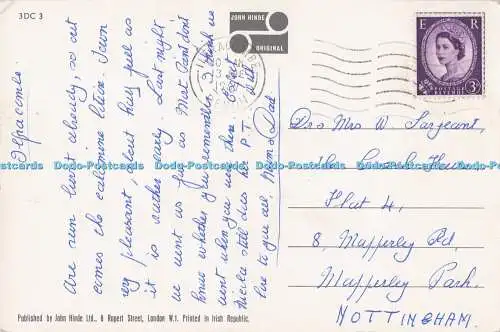 3DC 3
JOHN HINDE
ORIGINAL
E R
POSTAGE
REVENUE
3D
Ilfracombe.
Are sun burnt already, so out
comes the calamine lotion. Town
very pleasant, silent hasy feel as
it is rather early. Last night
we went as far as Mort
know whether you remember,
went when you were there
Nicola still does her P.T.
Love to you all, Mum & Dad
Drs Mrs W. Sargeant,
Flat 4,
8, Mapperley Rd,
Mapperley Park.
NOTTINGHAM.
Dodo-Postcards Dodo-Postcards Dodo-Postcards Dodo-Postcards Dodo-Postcards
Published by John Hinde Ltd., 6 Rupert Street, London W.1. Printed in Irish Republic.